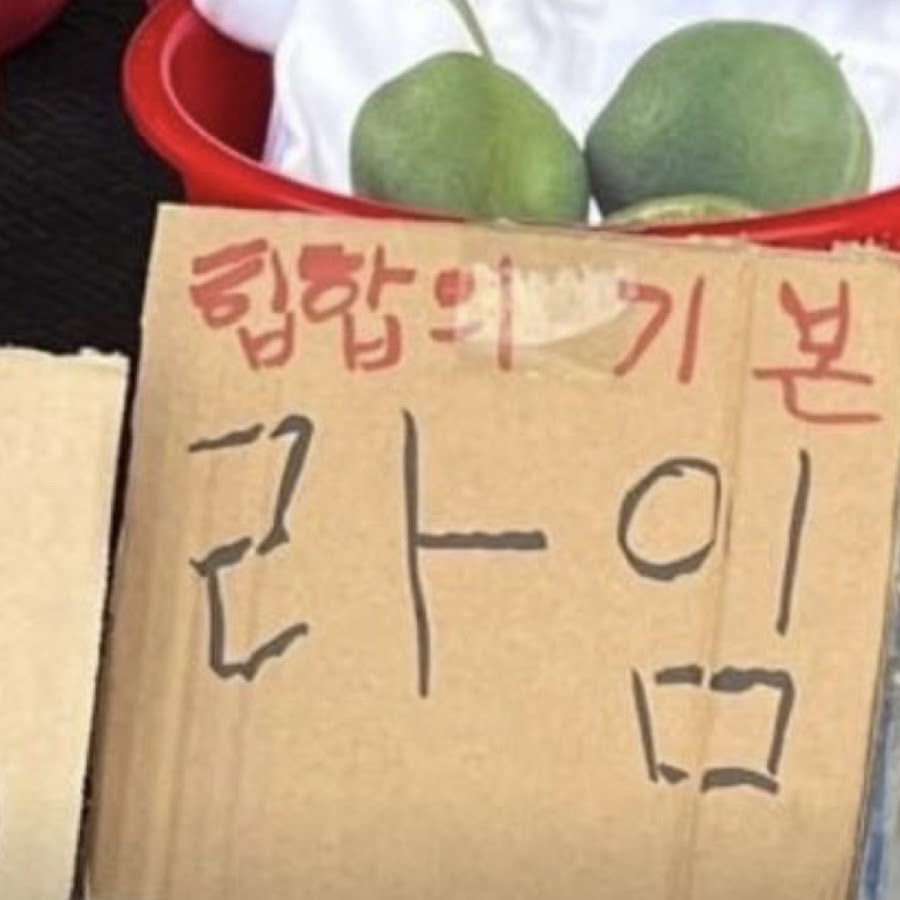 힙합의 기본
라임